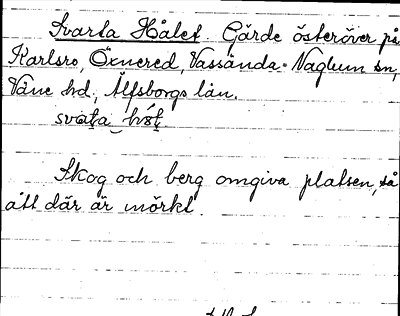 Svarta Hålet. Gärde österöver på
Karlsro, Öxnered, Vassända-Naglum sn,
Väne hd, Älfsborgs län.
svaṭa hɷ́ḷ.
Skog och berg omgiva platsen, så
att där är mörkt.